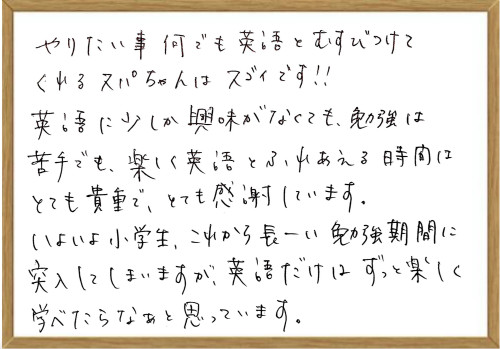 やりたい事何でも英語とむすびつけて
くれるスパちゃんはスゴイです!!
英語に少しか興味がなくても、勉強は
苦手でも、楽しく英語とふれあえる時間は
とても貴重で、とても感謝しています。
いよいよ小学生、これから長ーい勉強期間に
突入してしまいますが、英語だけはずっと楽しく
学べたらなぁと思っています。